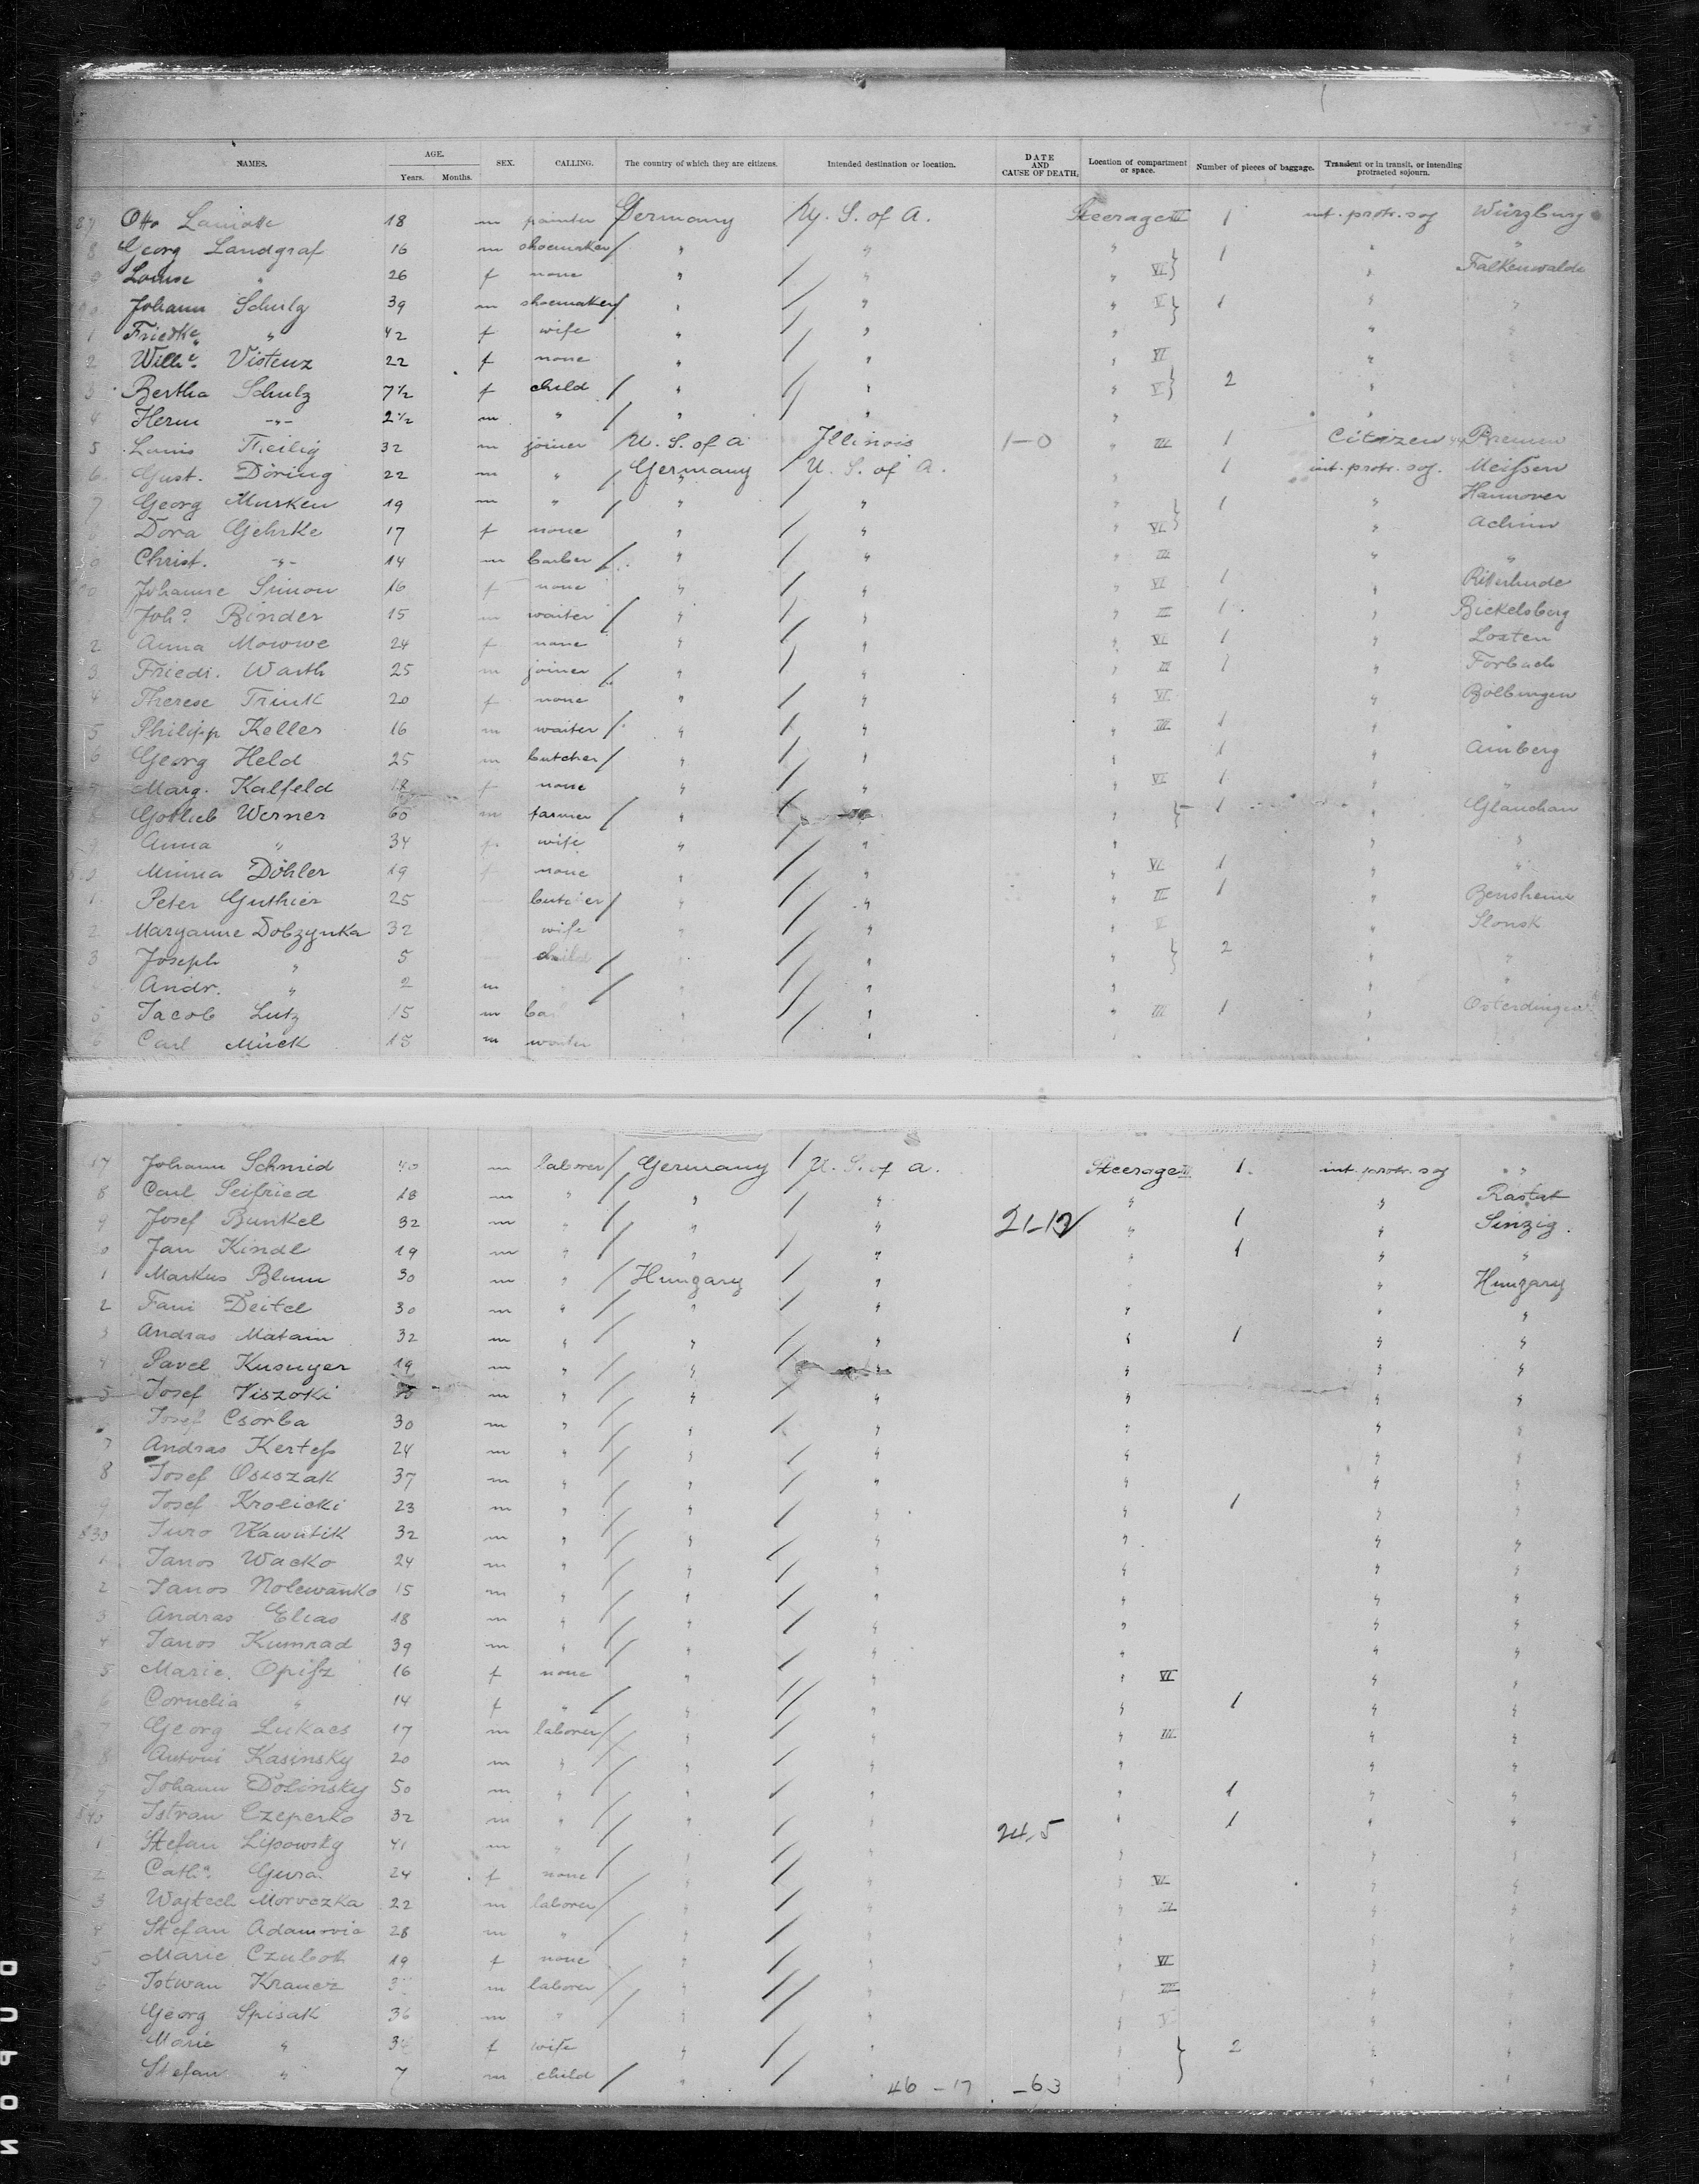 NAMES. AGE. Years. Months. SEX. CALLING. The country of which they are citizens. Intended destination or location. DATE AND CAUSE OF DEATH. Location of compartment or space. Number of pieces of baggage. Transient or in transit, or intending protracted sojourn.
Otto 18 m painter Germany U. S. of A. Steerage III 1 int. protr. soj Würzburg
8 Georg Landgraf 16 m shoemaker " " " 1 " "
9 Louise " 26 f none " " " VI " Falkenwalde
Johann Schulz 39 m shoemaker " " " V 1 " "
1 Friedke " 42 f wife " " " " "
2 Willh. Vistenz 22 f none " " " VI " "
3 Bertha Schulz 7½ f child " " " V 2 " "
4 Herm -"- 2½ m " " " " "
5 Louis Theilig 32 m joiner U. S. of A Illinois 1-0 " III 1 Citizen Bremen
6 Gust. Döring 22 m " Germany U. S. of A. " 1 int. protr. soj. Meissen
7 Georg Murken 19 m " " " " 1 " Hannover
Dora Gehrke 17 f none " " " VI " Achim
Christ. -"- 14 m barber " " " III " "
Johanne Simon 16 f none " " " VI 1 " Ritterhude
Joh. Binder 15 m waiter " " " III 1 " Bickelsberg
2 Anna Mowwe 24 f none " " " VI 1 " Loxten
3 Friedr. Warth 25 m joiner " " " III 1 " Forbach
4 Therese Trink 20 f none " " " VI " Bölbingen
5 Philipp Keller 16 m waiter " " " III 1 " "
6 Georg Held 25 m butcher " " " 1 " Amberg
Marg. Kalfeld 18 f none " " " VI 1 " "
8 Gottlieb Werner 60 m farmer " " " 1 " Glauchau
Anna " 34 f wife " " " " "
Minna Döhler 19 f none " " " VI 1 " "
1 Peter Guthier 25 butcher " " " III 1 " Bensheim
2 Maryanne Dobzynka 32 wife " " " V " Slonsk
3 Joseph " 5 child " " " 2 " "
Andr. " 2 m " " " " "
5 Jacob Lutz 15 m " " " III 1 " Osterdingen
6 Carl Mück 15 m waiter " " "
17 Johann Schmid 40 m laborer Germany U. S. of A. Steerage III 1. int. protr. soj " "
8 Carl Seifried 18 m " " " " " Rastat
9 Josef Bunkel 32 m " " " 21-13 " 1 " Sinzig.
0 Jan Kindl 19 m " " " " 1 " "
1 Markus Blum 30 m " Hungary " " " Hungary
2 Fani Deitel 30 m " " " " " "
3 Andras Matain 32 m " " " " 1 " "
4 Pavel Kusnyer 19 m " " " " " "
5 Josef Viszoki m " " " " " "
Josef Csorba 30 m " " " " " "
7 Andras Kertess 24 m " " " " " "
8 Josef Osiszak 37 m " " " " " "
9 Josef Krolicki 23 m " " " " 1 " "
830 Juro Kawutik 32 m " " " " " "
1 Janos Wacko 24 m " " " " " "
2 Janos Nolewanko 15 m " " " " " "
3 Andras Elias 18 m " " " " " "
4 Janos Kumrad 39 m " " " " " "
5 Marie Opisz 16 f none " " " VI " "
6 Cornelia " 14 f " " " " 1 " "
7 Georg Lukacs 17 m laborer " " " III " "
8 Antoni Kasinsky 20 m " " " " " "
9 Johann Dolinsky 50 m " " " " 1 " "
840 Istvan Czeperko 32 m " " " " 1 " "
1 Stefan Lipowsky 41 m " " " 24,5 " " "
2 Cath. Gura 24 f none " " " VI " "
3 Wojtech Morvczka 22 m laborer " " " III " "
4 Stefan Adamovic 28 m " " " " " "
5 Marie Czuboth 19 f none " " " VI " "
6 Istwan Krancz m laborer " " " III " "
Georg Spisak 36 m " " " " V " "
Marie " f wife " " " 2 " "
Stefan " 7 m child " " " " "
46 - 17 - 63